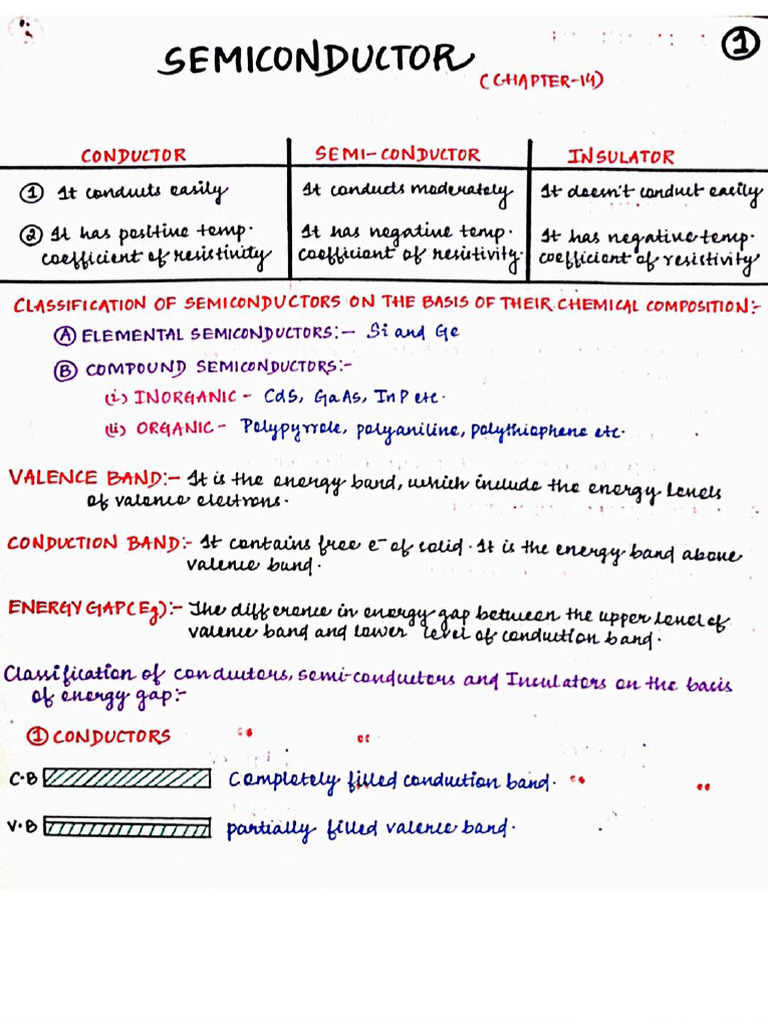 SEMICONDUCTOR
(CHAPTER-14)
1
CONDUCTOR SEMI-CONDUCTOR INSULATOR
① It conducts easily It conducts moderately It doesn't conduct easily
② It has positive temp. coefficient of resistivity It has negative temp. coefficient of resistivity. It has negative temp. coefficient of resistivity
CLASSIFICATION OF SEMICONDUCTORS ON THE BASIS OF THEIR CHEMICAL COMPOSITION:-
Ⓐ ELEMENTAL SEMICONDUCTORS:- Si and Ge
Ⓑ COMPOUND SEMICONDUCTORS:-
(i) INORGANIC - CdS, GaAs, InP etc.
(ii) ORGANIC - Polypyrrole, polyaniline, polythiophene etc.
VALENCE BAND:- It is the energy band, which include the energy levels
of valence electrons.
CONDUCTION BAND:- It contains free e⁻ of solid. It is the energy band above
valence band.
ENERGY GAP(Eg):- The difference in energy gap between the upper level of
valence band and lower level of conduction band.
Classification of conductors, semi-conductors and Insulators on the basis
of energy gap:-
① CONDUCTORS
C.B Completely filled conduction band.
V.B partially filled valence band.